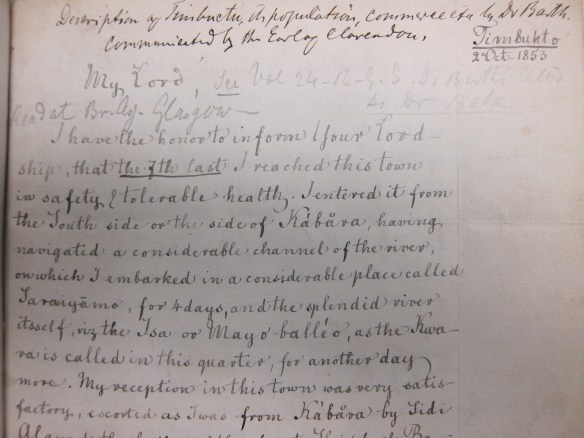 Description of Timbuctu, its population, commerce &ca by Dr Barth.
Communicated by the Earl of Clarendon.
Timbukto
2 Oct. 1853
My Lord, See Vol 24. R.G.S. Dr Barth's
to Dr Beke
Read at Br. As. Glasgow
I have the honor to inform Your Lord-
ship, that the 7th last I reached this town
in safety & tolerable health. I entered it from
the South side or the side of Kábåra, having
navigated a considerable channel of the river,
on which I embarked in a considerable place called
Saraiyāmo, for 4 days, and the splendid river
itsself, viz the Isa or Mayo balléo, as the Kwa-
ra is called in this quarter, for another day
more. My reception in this town was very satis-
factory, escorted as I was from Kábåra by Sidi